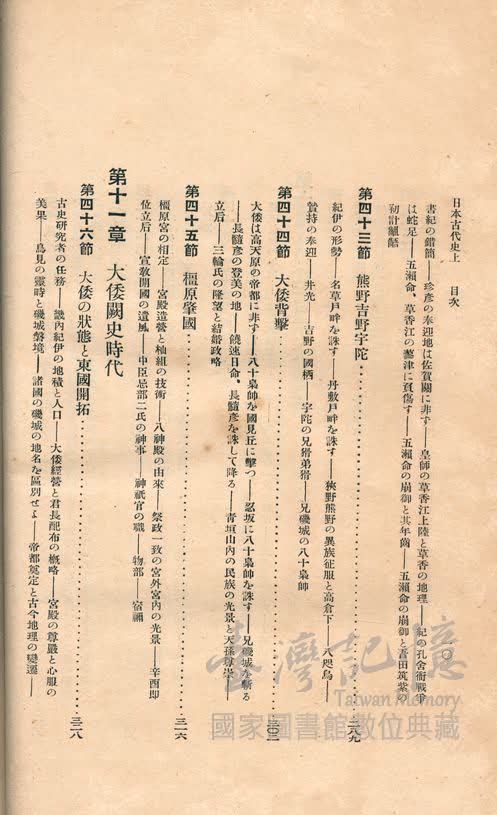 日本古代史上　目次　一〇
書紀の錯簡——珍彦の奉迎地は佐賀關に非す——皇師の草香江上陸と草香の地理——紀の孔舍衙戰爭
は蛇足——五瀨命、草香江の蓼津に負傷す——五瀨命の崩御と其年齒——五瀨命の崩御と吾田筑紫の
初計齟齬
第四十三節　熊野吉野宇陀……二八九
紀伊の形勢——名草戸畔を誅す——丹敷戸畔を誅す——狹野熊野の異族征服と高倉下——八咫烏——
贄持の奉迎——井光——吉野の國樔——宇陀の兄猾弟猾——兄磯城の八十梟帥
第四十四節　大倭背擊……三〇二
大倭は高天原の帝都に非す——八十梟帥を國見丘に擊つ——忍坂に八十梟帥を誅す——兄磯城を斬る
——長髓彦の登美の地——饒速日命、長髓彦を誅して降る——青垣山內の民族の光景と天孫尊崇——
立后——三輪氏の隆望と結婚政略
第四十五節　橿原肇國……三一六
橿原宮の相定——宮殿造營と杣組の技術——八神殿の由來——祭政一致の宮外宮內の光景——辛酉即
位立后——宣敎開國の遺風——中臣忌部二氏の神事——神祇官の職——物部——宿禰
第十一章　大倭闕史時代
第四十六節　大倭の狀態と東國開拓……三二八
古史硏究者の任務——畿內紀伊の地積と人口——大倭經營と君長配布の槪略——宮殿の尊嚴と心服の
美果——鳥見の靈時と磯城磐境——諸國の磯城の地名を區別せよ——帝都奠定と古今地理の變遷——
臺灣記憶
Taiwan Memory
國家圖書館數位典藏